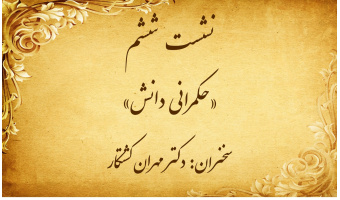 نشست ششم
«حکمرانی دانش»
سخنران: دکتر مهران کشتکار